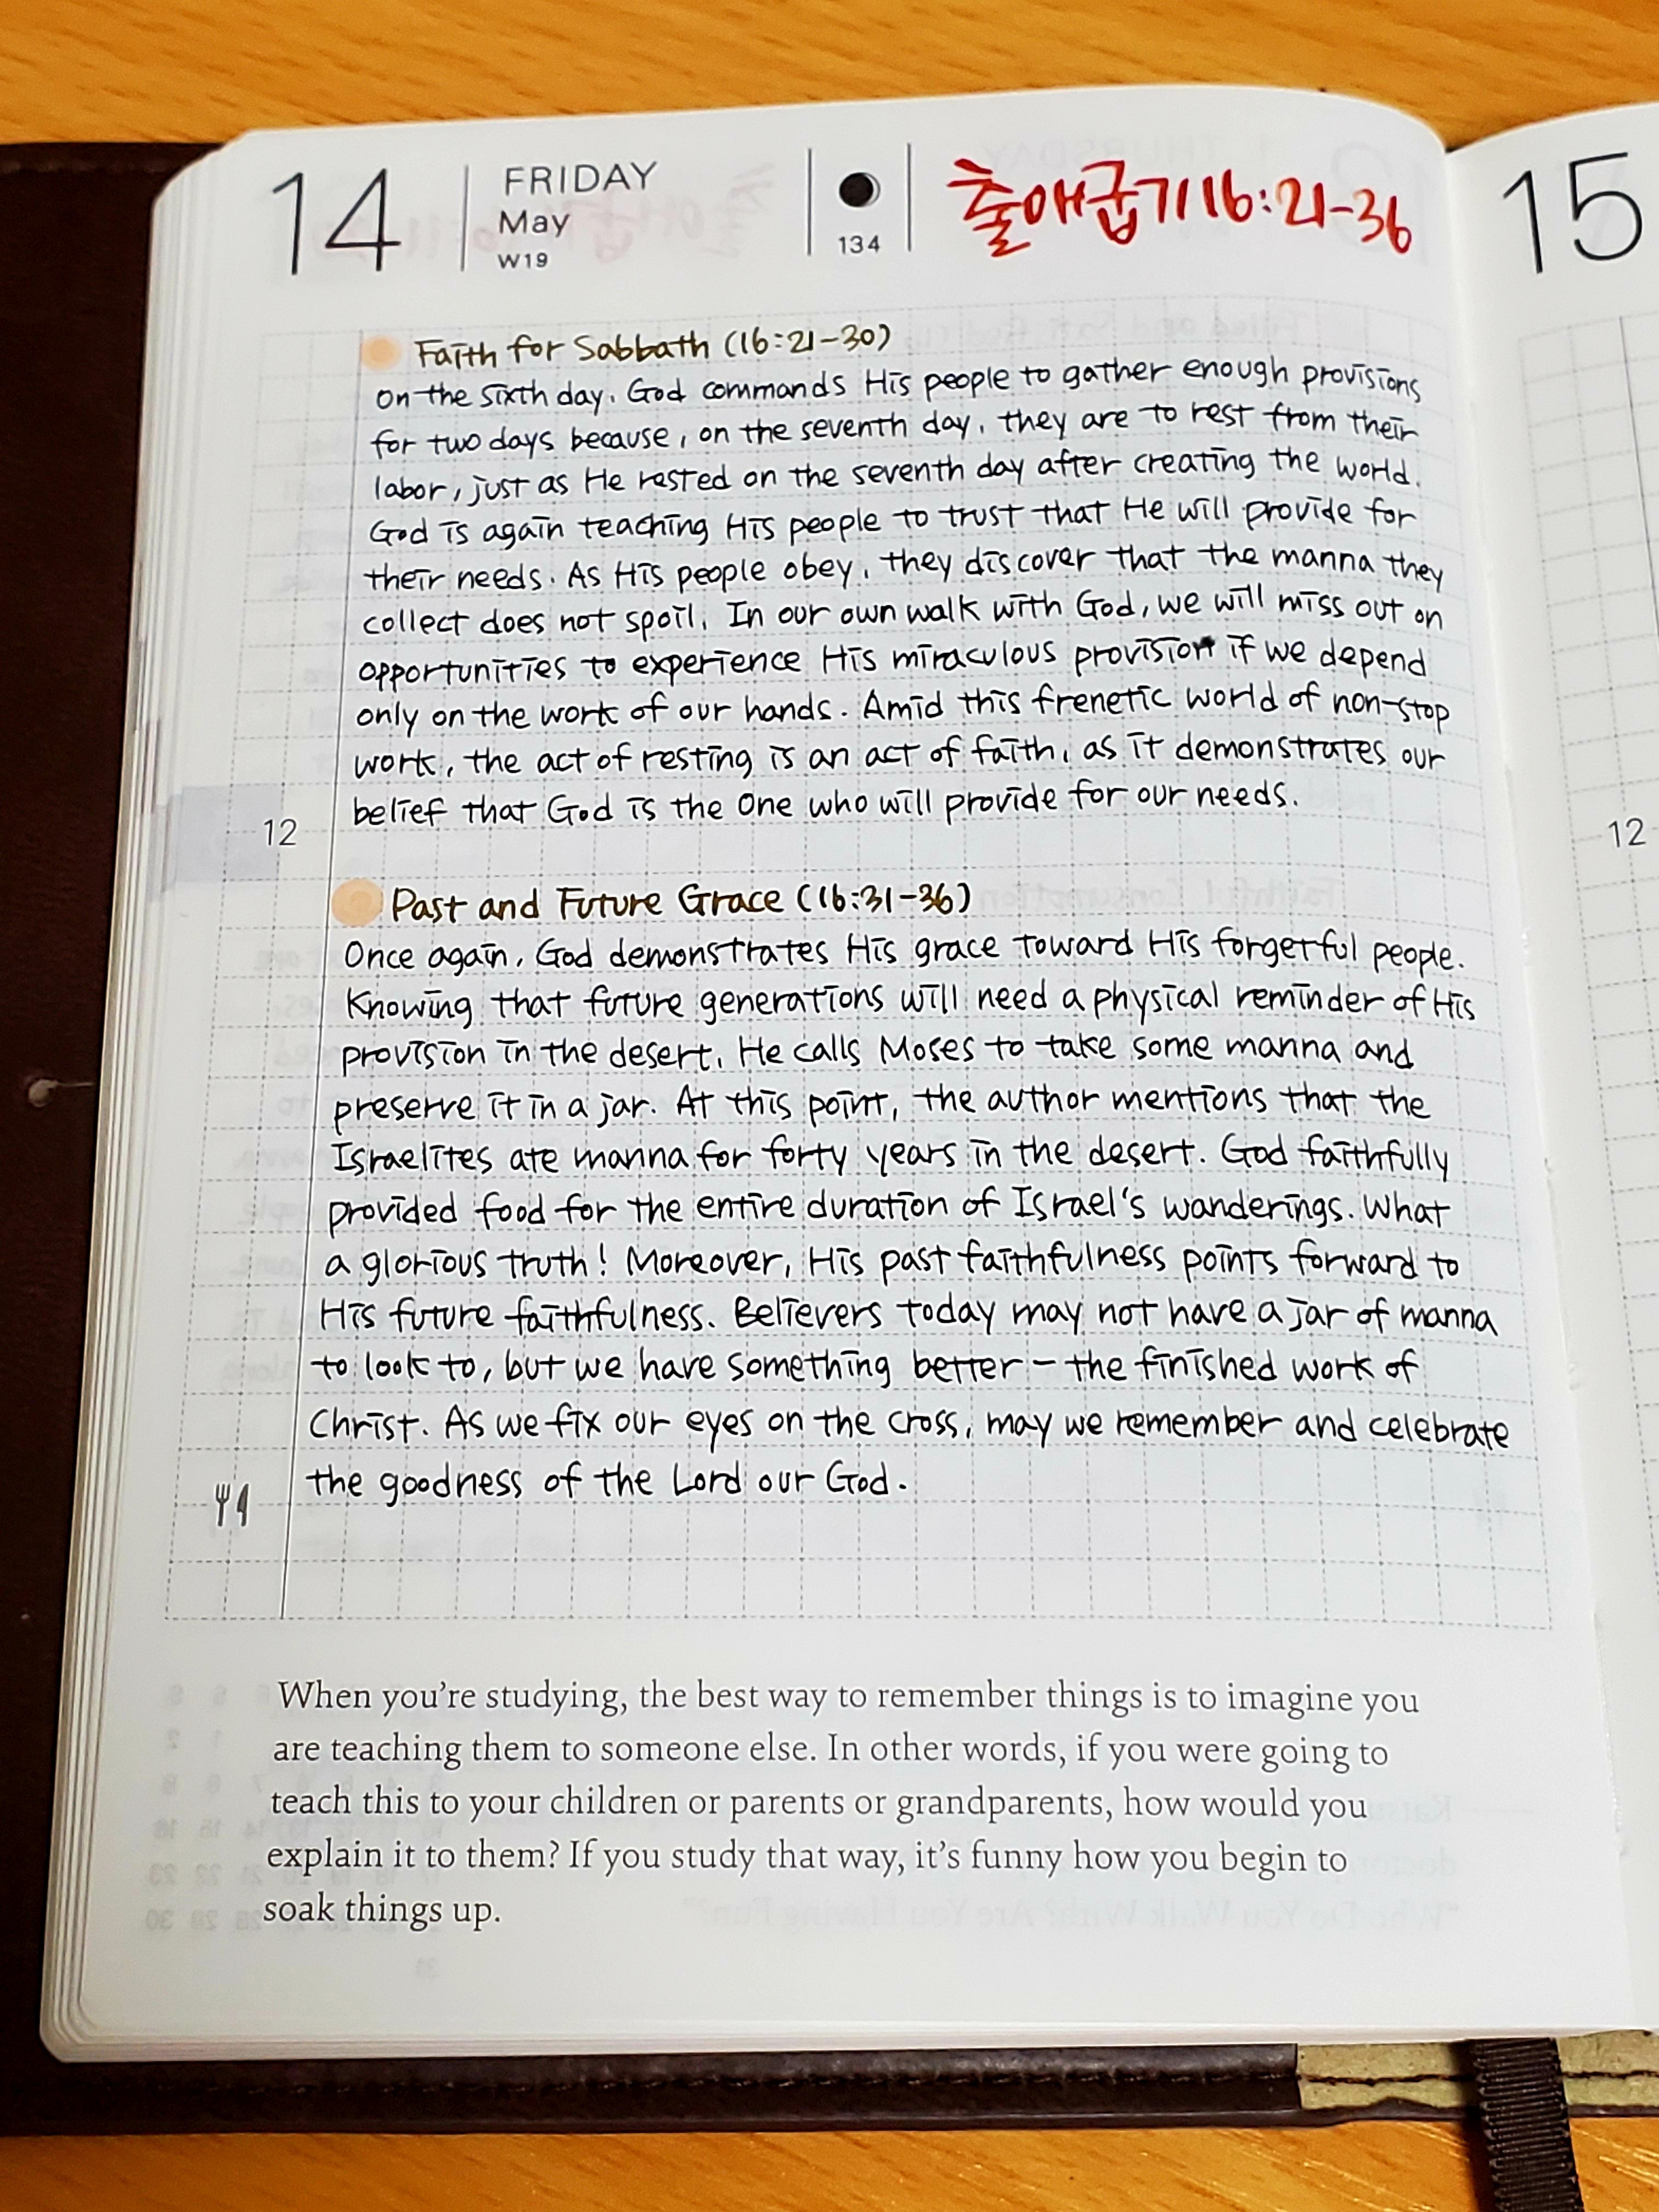 14
FRIDAY
May
W19
134
출애굽기 16:21-36
15
Faith for Sabbath (16:21-30)
On the sixth day, God commands His people to gather enough provisions
for two days because, on the seventh day, they are to rest from their
labor, just as He rested on the seventh day after creating the world.
God is again teaching His people to trust that He will provide for
their needs. As His people obey, they discover that the manna they
collect does not spoil. In our own walk with God, we will miss out on
opportunities to experience His miraculous provision if we depend
only on the work of our hands. Amid this frenetic world of non-stop
work, the act of resting is an act of faith, as it demonstrates our
belief that God is the One who will provide for our needs.
12
12
Past and Future Grace (16:31-36)
Once again, God demonstrates His grace toward His forgetful people.
Knowing that future generations will need a physical reminder of His
provision in the desert, He calls Moses to take some manna and
preserve it in a jar. At this point, the author mentions that the
Israelites ate manna for forty years in the desert. God faithfully
provided food for the entire duration of Israel's wanderings. What
a glorious truth! Moreover, His past faithfulness points forward to
His future faithfulness. Believers today may not have a jar of manna
to look to, but we have something better - the finished work of
Christ. As we fix our eyes on the cross, may we remember and celebrate
the goodness of the Lord our God.
When you're studying, the best way to remember things is to imagine you
are teaching them to someone else. In other words, if you were going to
teach this to your children or parents or grandparents, how would you
explain it to them? If you study that way, it's funny how you begin to
soak things up.